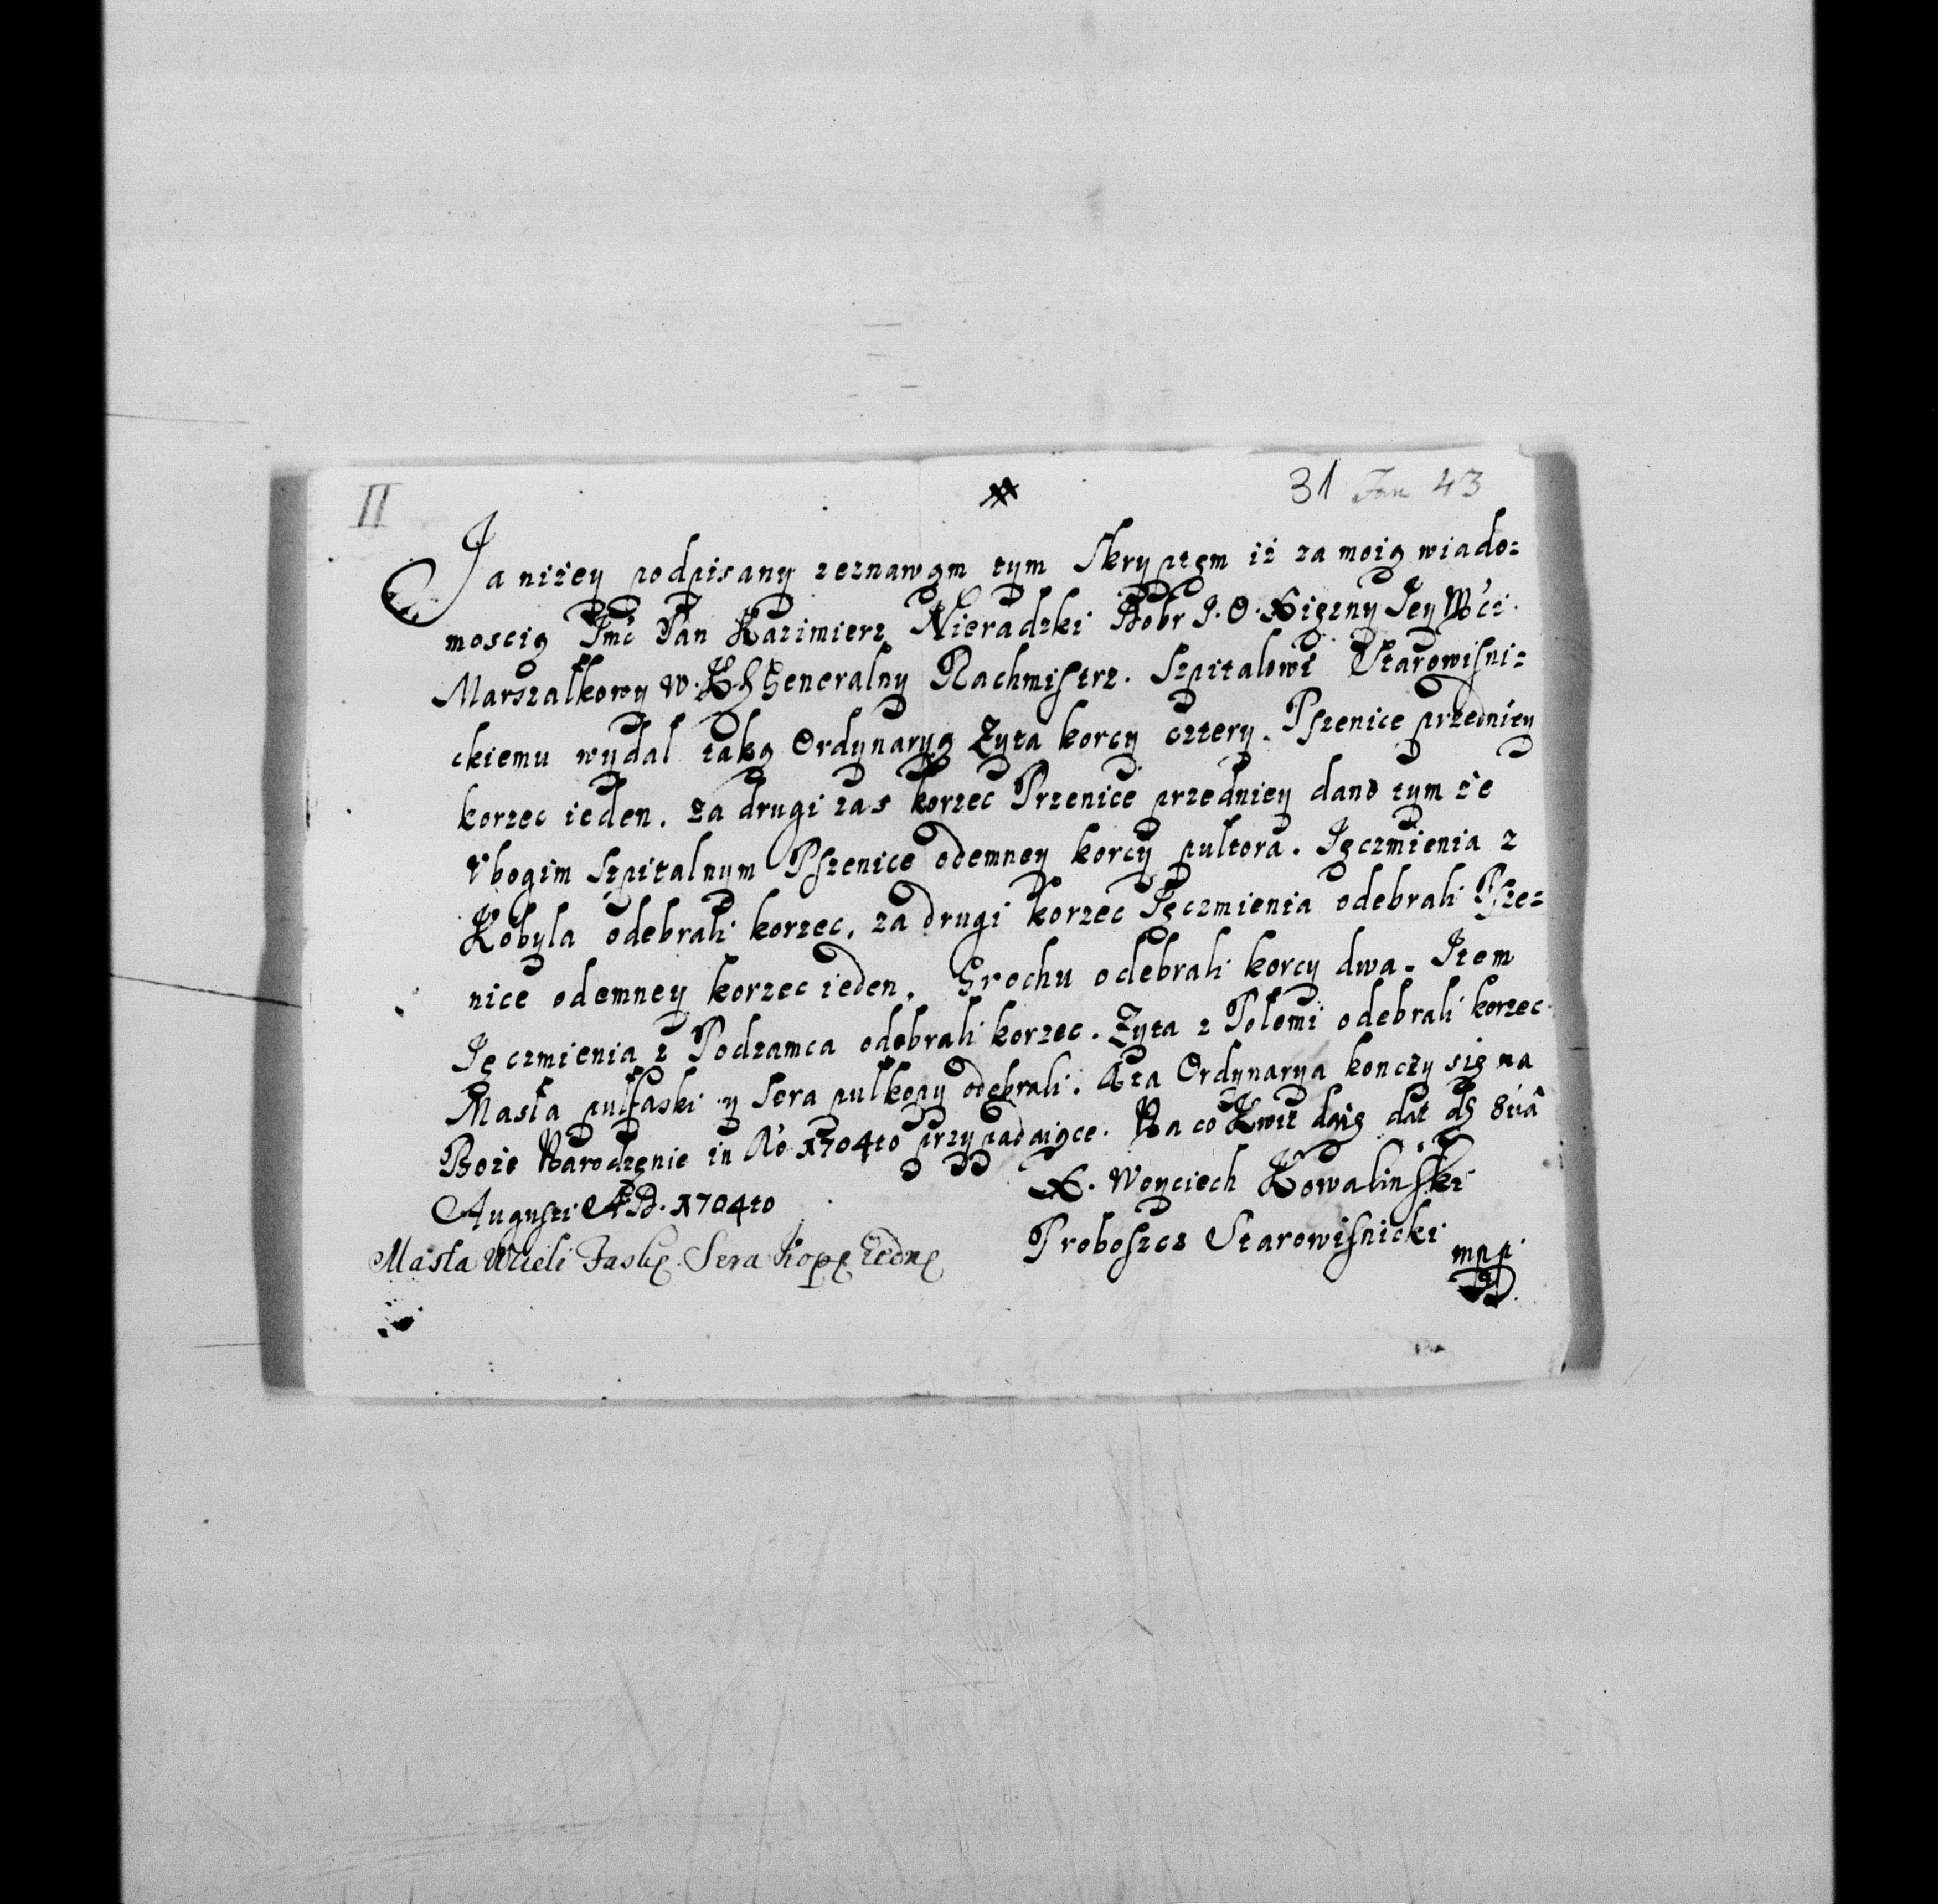 II 31 Jan 43
Ja niżey podpisany zeznawąm tym Skryptęm iż za moią wiado=
moscią Jmć Pan Kazimierz Nieradzki Dobr J. O. Xiężny Jey Mći.
Marszałkowy W. K. Generalny Rachmistrz. Szpitalowi Starowiśni=
ckiemu wydał taką Ordynaryą Żyta korcy cztery. Pszenice przedniey
korzec ieden. za drugi zas korzec Przenice przedniey dano tym że
Vbogim Szpitalnym Pszenice odemney korcy pultora. Jęczmienia z
Kobyla odebrali korzec, za drugi korzec Jęczmienia odebrali Psze=
nice odemney korzec ieden. Grochu odebrali korcy dwa. Item
Jęczmienia z Podzamca odebrali korzec. Żyta z Połomi odebrali korzec
Masła pułfaski y Sera pułkopy odebrali. Ata Ordynarya konczy się na
Boże Narodzęnie in Aö 1704to przypadaiące. Na co Kwit daię dat ds 8uâ
Augusti A D. 1704to X. Woyciech Kowalinski
Proboszcz Starowiśnicki mpp
Masła Wzieli Faskę. Sera Kopę Iednę